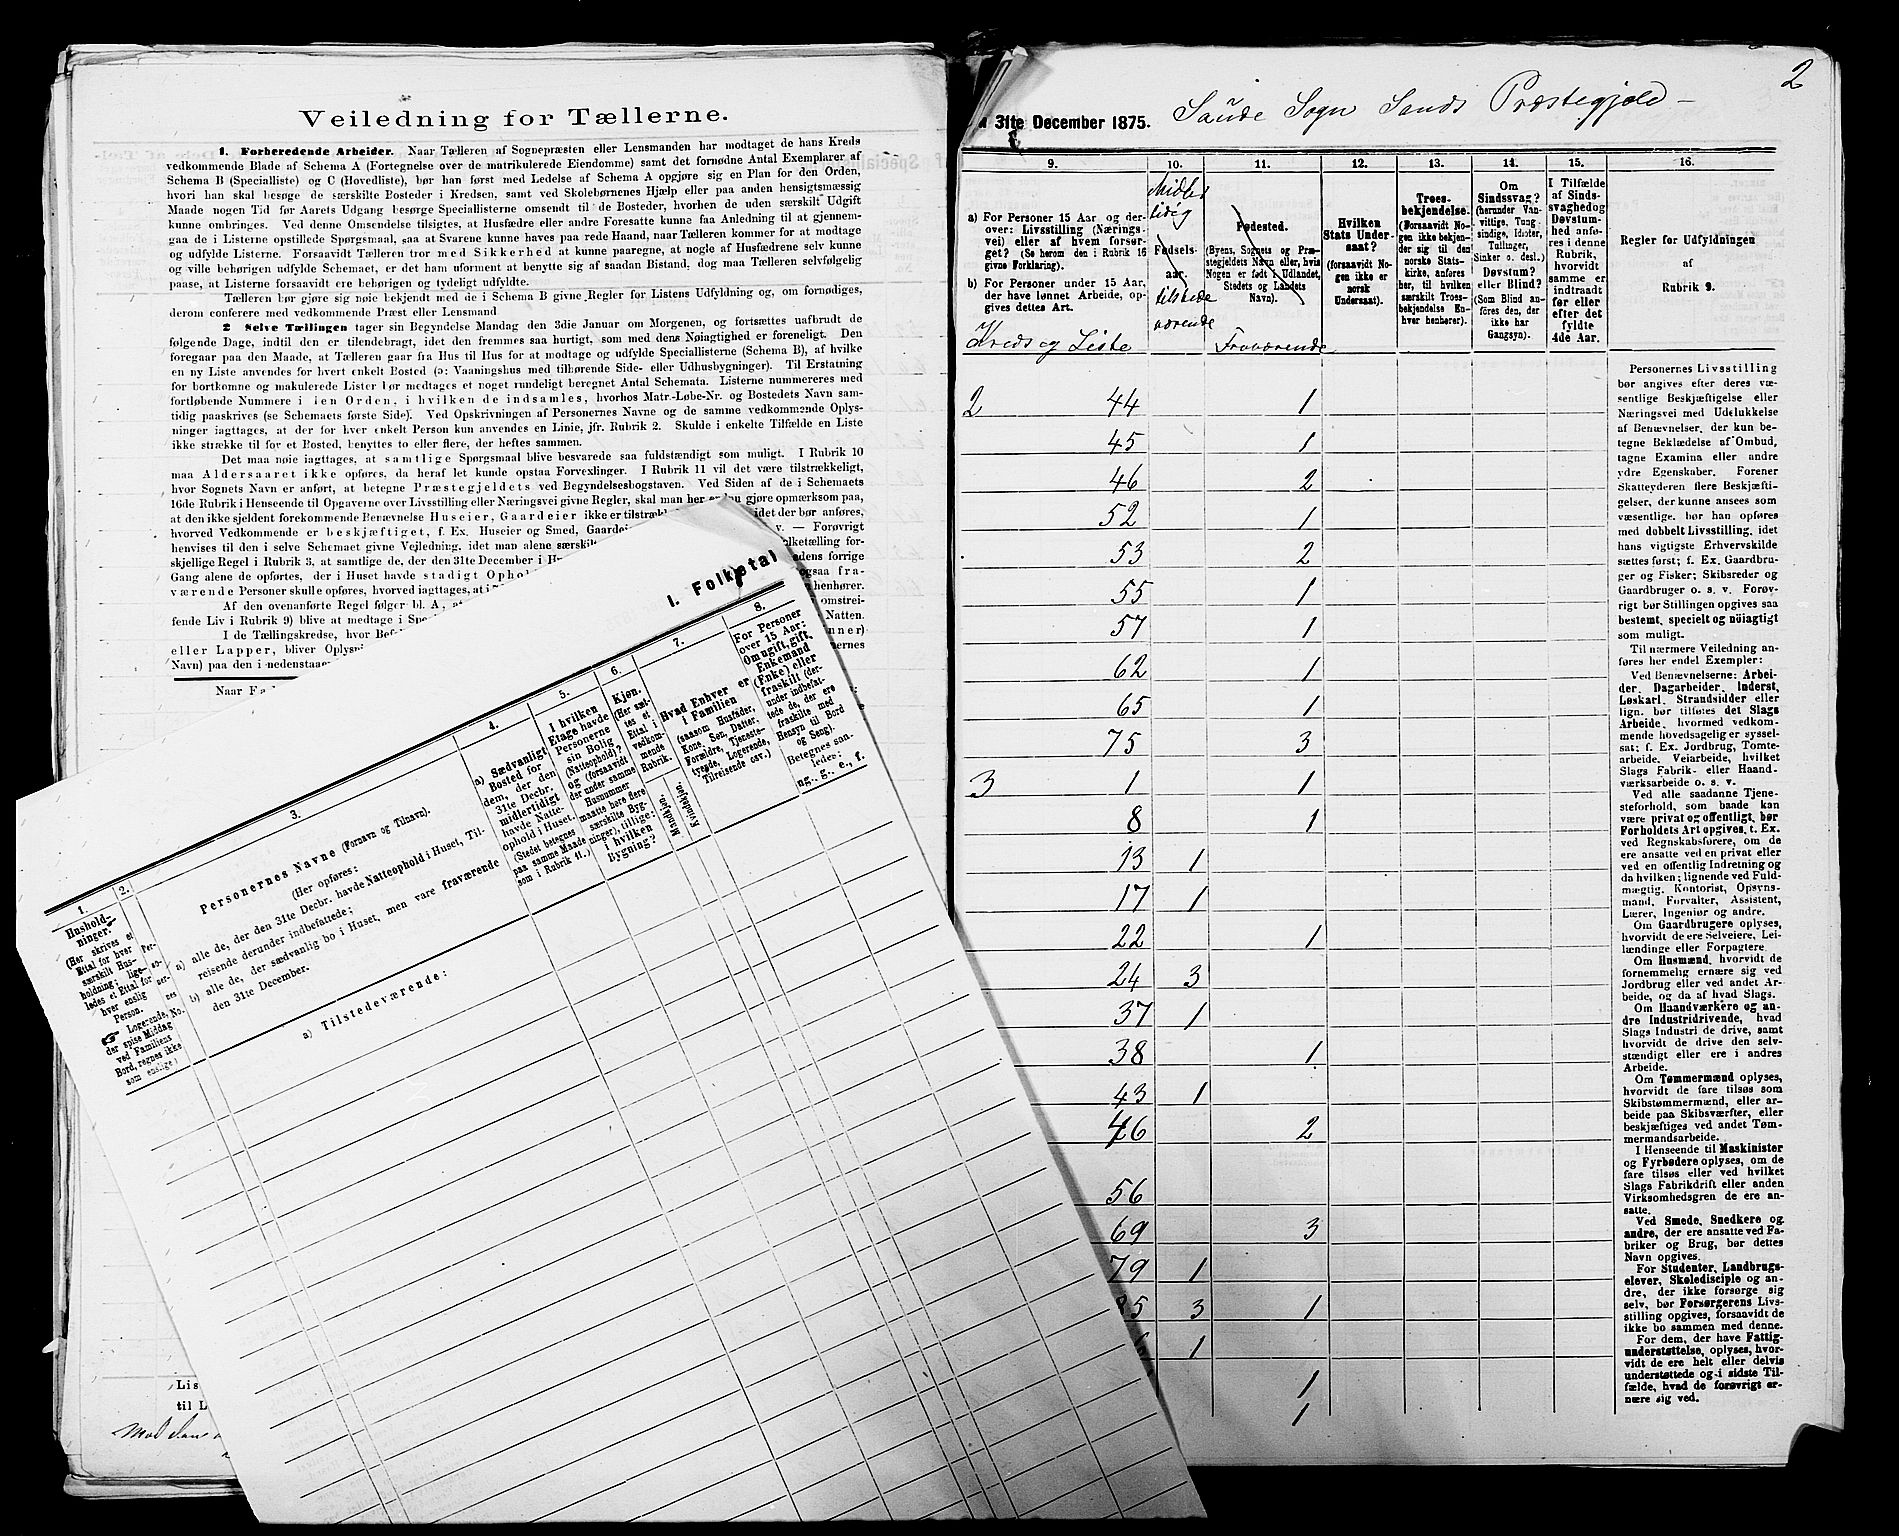 Veiledning for Tællerne.
1. Forberedende Arbeider. Naar Tælleren af Sognepræsten eller Lensmanden har modtaget de hans Kreds
vedkommende Blade af Schema A (Fortegnelse over de matrikulerede Eiendomme) samt det fornødne Antal Exemplarer af
Schema B (Specialliste) og C (Hovedliste), bør han først med Ledelse af Schema A opgjøre sig en Plan for den Orden,
hvori han skal besøge de særskilte Bosteder i Kredsen, samt ved Skolebørnenes Hjælp eller paa anden hensigtsmæssig
Maade nogen Tid før Aarets Udgang besørge Speciallisterne omsendt til de Bosteder, hvorhen de uden særskilt Udgift
kunne ombringes. Ved denne Omsendelse tilsigtes, at Husfædre eller andre Foresatte kunne faa Anledning til at gjennem-
gaa de i Listerne opstillede Spørgsmaal, saa at Svarene kunne haves paa rede Haand, naar Tælleren kommer for at modtage
og udfylde Listerne. Forsaavidt Tælleren tror med Sikkerhed at kunne paaregne, at nogle af Husfædrene selv kunne
og ville behørigen udfylde Schemaet, er det ham uforment at benytte sig af saadan Bistand, dog maa Tælleren selvfølgelig
paase, at Listerne forsaavidt ere behørigen og tydeligt udfyldte.
Tælleren bør gjøre sig nøie bekjendt med de i Schema B givne Regler for Listens Udfyldning og, om fornødiges,
derom conferere med vedkommende Præst eller Lensmand
2 Selve Tællingen tager sin Begyndelse Mandag den 3die Januar om Morgenen, og fortsættes uafbrudt de
følgende Dage, indtil den er tilendebragt, idet den fremmes saa hurtigt, som med dens Nøiagtighed er foreneligt. Den
foregaar paa den Maade, at Tælleren gaar fra Hus til Hus for at modtage og udfylde Speciallisterne (Schema B), af hvilke
en ny Liste anvendes for hvert enkelt Bosted (ɔ: Vaaningshus med tilhørende Side- eller Udhusbygninger). Til Erstatning
for bortkomne og makulerede Lister bør medtages et noget rundeligt beregnet Antal Schemata. Listerne nummereres med
fortløbende Nummere i den Orden, i hvilken de indsamles, hvorhos Matr.-Løbe-Nr. og Bostedets Navn sam-
tidig paaskrives (se Schemaets første Side). Ved Opskrivningen af Personernes Navne og de samme vedkommende Oplys-
ninger iagttages, at der for hver enkelt Person kun anvendes en Linie, jfr. Rubrik 2. Skulde i enkelte Tilfælde en Liste
ikke strække til for et Bosted, benyttes to eller flere, der heftes sammen.
Det maa nøie iagttages, at samtlige Spørgsmaal blive besvarede saa fuldstændigt som muligt. I Rubrik 10
maa Aldersaaret ikke opføres, da heraf let kunde opstaa Forvexlinger. I Rubrik 11 vil det være tilstrækkeligt,
hvor Sognets Navn er anført, at betegne Præstegjeldets ved Begyndelsesbogstaven. Ved Siden af de i Schemaets
16de Rubrik i Henseende til Opgaverne over Livsstilling eller Næringsvei givne Regler, skal man her endnu gjøre opmærksom paa,
at den ikke sjeldent forekommende Benævnelse Huseier, Gaardeier ikke er tilstrækk idet der bør anføres,
hvorved Vedkommende er beskjæftiget, f. Ex. Huseier og Smed, Gaardei v. — Forøvrigt
henvises til den i selve Schemaet givne Vejledning, idet man alene særsk olketælling for-
skjellige Regel i Rubrik 3, at samtlige de, der den 31te December i H adens forrige
Gang alene de opførtes, der i Huset havde stadigt Oph ogsaa fra-
værende Personer skulle opføres, hvorved iagttages, at i henhører.
Af den ovenanførte Regel følger bl. A., at omstrei-
fende Liv i Rubrik 9) blive at medtage i Spe Natten.
I de Tællingskredse, hvor Bef nner)
eller Lapper, bliver Oplysn ernes
Navn) paa den i nedenstaae
Naar Fa
Lis
til L
I. Folketal
1. 2. 3. 4. 5. 6. 7. 8.
Hushold-
ninger.
(Her skrives et
Ettal for hver
særskilt Hus-
holdning; lige-
ledes et Ettal for
hver enslig
Person.
Logerende,
der spise Middag
ved Familiens
Bord, regnes ikke
som enslige.)
Personernes Navne (Fornavn og Tilnavn).
(Her opføres:
a) alle de, der den 31te Decbr. havde Natteophold i Huset, Til-
reisende derunder indbefattede;
b) alle de, der sædvanlig bo i Huset, men vare fraværende
den 31te December.
a) Tilstedeværende:
a) Sædvanligt
Bosted for
dem, der den
31te Decbr.
midlertidigt
havde Natte-
ophold i Huset.
(Stedet betegnes
paa samme Maade
som i Rubrik 11.)
I hvilken
Etage havde
Personerne
sin Bolig
(Natteophold)?
og (forsaavidt
der under samme
Husnummer
maatte høre flere
særskilte Byg-
ninger), tillige:
i hvilken
Bygning?
Kjøn.
(Her sæt-
tes et
Ettal i
vedkom-
mende
Rubrik.
Mandkjøn.
Kvindekjøn.
Hvad Enhver er
i Familien
(saasom Husfader,
Kone, Søn, Datter,
Forældre, Tjeneste-
tyende, Logerende,
Tilreisende osv.)
For Personer
over 15 Aar:
Om ugift, gift,
Enkemand
(Enke) eller
fraskilt (der-
under indbefat-
tede de, der ere
fraskilte med
Hensyn til Bord
og Seng).
Betegnes saa-
ledes:
ug., g., e., f.
2
31te December 1875. Saude Sogn Sands Præstegjeld
9. 10. 11. 12. 13. 14. 15. 16.
a) For Personer 15 Aar og der-
over: Livsstilling (Nærings-
vei) eller af hvem forsør-
get? (Se herom den i Rubrik 16
givne Forklaring).
b) For Personer under 15 Aar,
der have lønnet Arbeide, op-
gives dettes Art.
Midler
tidig
Fødsels-
aar.
tilstede
værende
Fødested.
(Byens, Sognets og Præ-
stegjeldets Navn eller, hvis
Nogen er født i Udlandet,
Stedets og Landets
Navn).
Hvilken
Stats Under-
saat?
(forsaavidt No-
gen ikke er
norsk
Undersaat).
Troes-
bekjendelse.
(Forsaavidt No-
gen ikke bekjen-
der sig til den
norske Stats-
kirke, anføres
her, til hvilken
særskilt Troes-
bekjendelse En-
hver henhører).
Om
Sindssvag?
(herunder Van-
vittige, Tung-
sindige, Idioter,
Tullinger,
Sinker o. desl.)
Døvstum?
eller Blind?
(Som Blind an-
føres den, der
ikke har
Gangsyn).
I Tilfælde
af Sinds-
svaghed og
Døvstum-
hed anfø-
res i denne
Rubrik,
hvorvidt
samme er
indtraadt
før eller
efter det
fyldte
4de Aar.
Regler for Udfyldningen
af
Rubrik 9.
Kreds og Liste Fraværende
2 44 1
45 1
46 2
52 1
53 2
55 1
57 1
62 1
65 1
75 3
3 1 1
8 1
13 1
17 1
22 1
24 3
37 1
38 1
43 1
46 2
56
69 3
79 1
5 3 1
6 1
1
1
Personernes Livsstilling
bør angives efter deres væ-
sentlige Beskjæftigelse eller
Næringsvei med Udelukkelse
af Benævnelser, der kun be-
tegne Beklædelse af Ombud,
tagne Examina eller andre
ydre Egenskaber. Forener
Skatteyderen flere Beskjæfti-
gelser, der kunne ansees som
væsentlige, bør han opføres
med dobbelt Livsstilling, idet
hans vigtigste Erhvervskilde
sættes først; f. Ex. Gaardbru-
ger og Fisker; Skibsreder og
Gaardbruger o. s. v. Forøv-
rigt bør Stillingen opgives saa
bestemt, specielt og nöiagtigt
som muligt.
Til nærmere Veiledning an-
føres her endel Exempler:
Ved Benævnelserne: Arbei-
der, Dagarbeider, Inderst,
Løskarl, Strandsidder eller
lign. bør tilføies det Slags
Arbeide, hvormed vedkom-
mende hovedsagelig er syssel-
sat; f. Ex. Jordbrug, Tomte-
arbeide, Veiarbeide, hvilket
Slags Fabrik- eller Haand-
værksarbeide o. s. v.
Ved alle saadanne Tjene-
steforhold, som baade kan
være privat og offentligt, bør
Forholdets Art opgives, t. Ex.
ved Regnskabsførere, om de
ere ansatte ved en privat eller
ved en offentlig Indretning og
da hvilken; lignende ved Fuld-
mægtig, Kontorist, Opsyns-
mand, Forvalter, Assistent,
Lærer, Ingeniør og andre.
Om Gaardbrugere oplyses,
hvorvidt de ere Selveiere, Lei-
lændinge eller Forpagtere.
Om Husmænd, hvorvidt de
fornemmelig ernære sig ved
Jordbrug eller ved andet Ar-
beide, og da af hvad Slags.
Om Haandværkere og an-
dre Industridrivende, hvad
Slags Industri de drive, samt
hvorvidt de drive den selv-
stændigt eller ere i andres
Arbeide.
Om Tømmermænd oplyses,
hvorvidt de fare tilsøs som
Skibstømmermænd, eller ar-
beide paa Skibsværfter, eller
beskjæftiges ved andet Tøm-
mermandsarbeide.
I Henseende til Maskinister
og Fyrbødere oplyses, om de
fare tilsøs eller ved hvilket
Slags Fabrikdrift eller anden
Virksomhedsgren de ere an-
satte.
Ved Smede, Snedkere og
andre, der ere ansatte ved Fa-
briker og Brug, bør dettes
Navn opgives.
For Studenter, Landbrugs-
elever, Skoledisciple og an-
dre, der ikke forsørge sig
selv, bør Forsørgerens Livs-
stilling opgives, forsaavidt de
ikke bo sammen med denne.
For dem, der have Fattig-
understøttelse, oplyses, hvor-
vidt de ere helt eller delvis
understøttede og i sidste Til-
fælde, hvad de forøvrigt er-
nære sig ved.